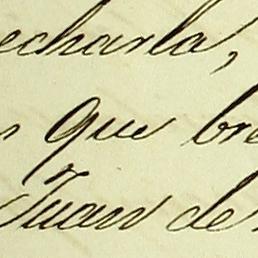 echarla,
que bre
Juan de